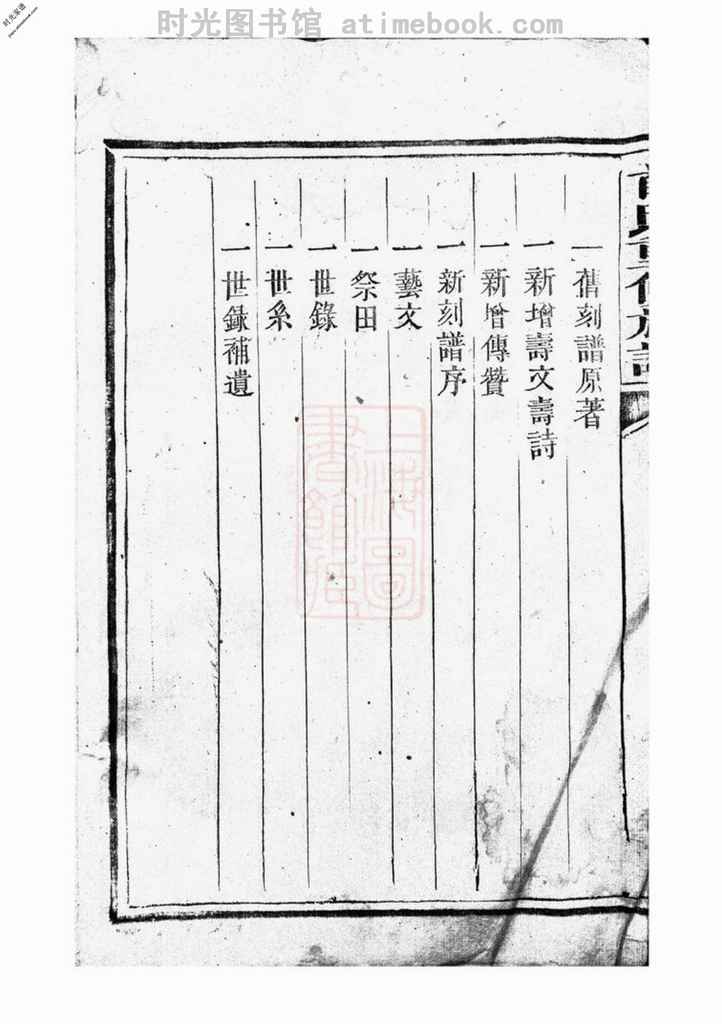 时光图书馆 atimebook.com
时光家谱
www.atimebook.com
一 舊刻譜原著
一 新增壽文壽詩
一 新增傳贊
一 新刻譜序
一 藝文
一 祭田
一 世錄
一 世系
一 世録補遺
上海圖
書館藏